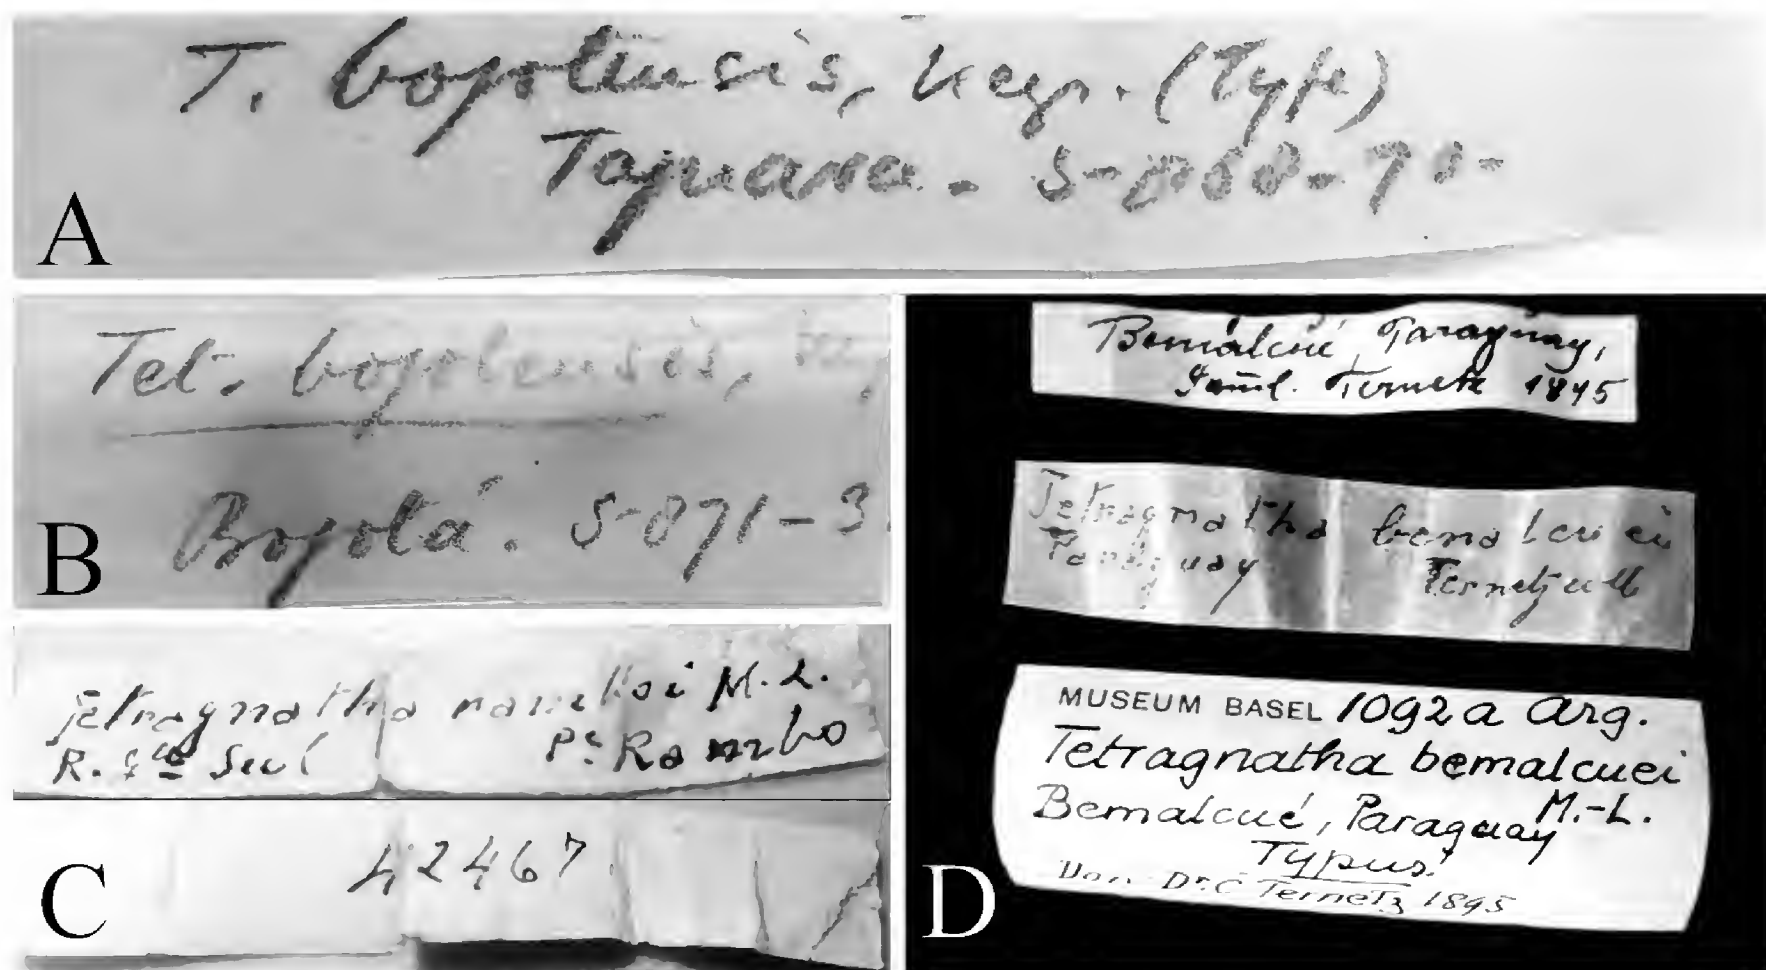 T. bogotensis, Keys. (Type)
Taquara. S-868-70-
A
Tet. bogotensis,
Bogotá. S-871-3
B
Tetragnatha M.-L.
R. gde Sul Pe Rambo
42467
C
Bemalcué, Paraguay,
Ternetz 1895
Tetragnatha bemalcuei
Paraguay Ternetz
MUSEUM BASEL 1092a Arg.
Tetragnatha bemalcuei
M.-L.
Bemalcué, Paraguay
Typus!
Dr. C Ternetz 1895
D